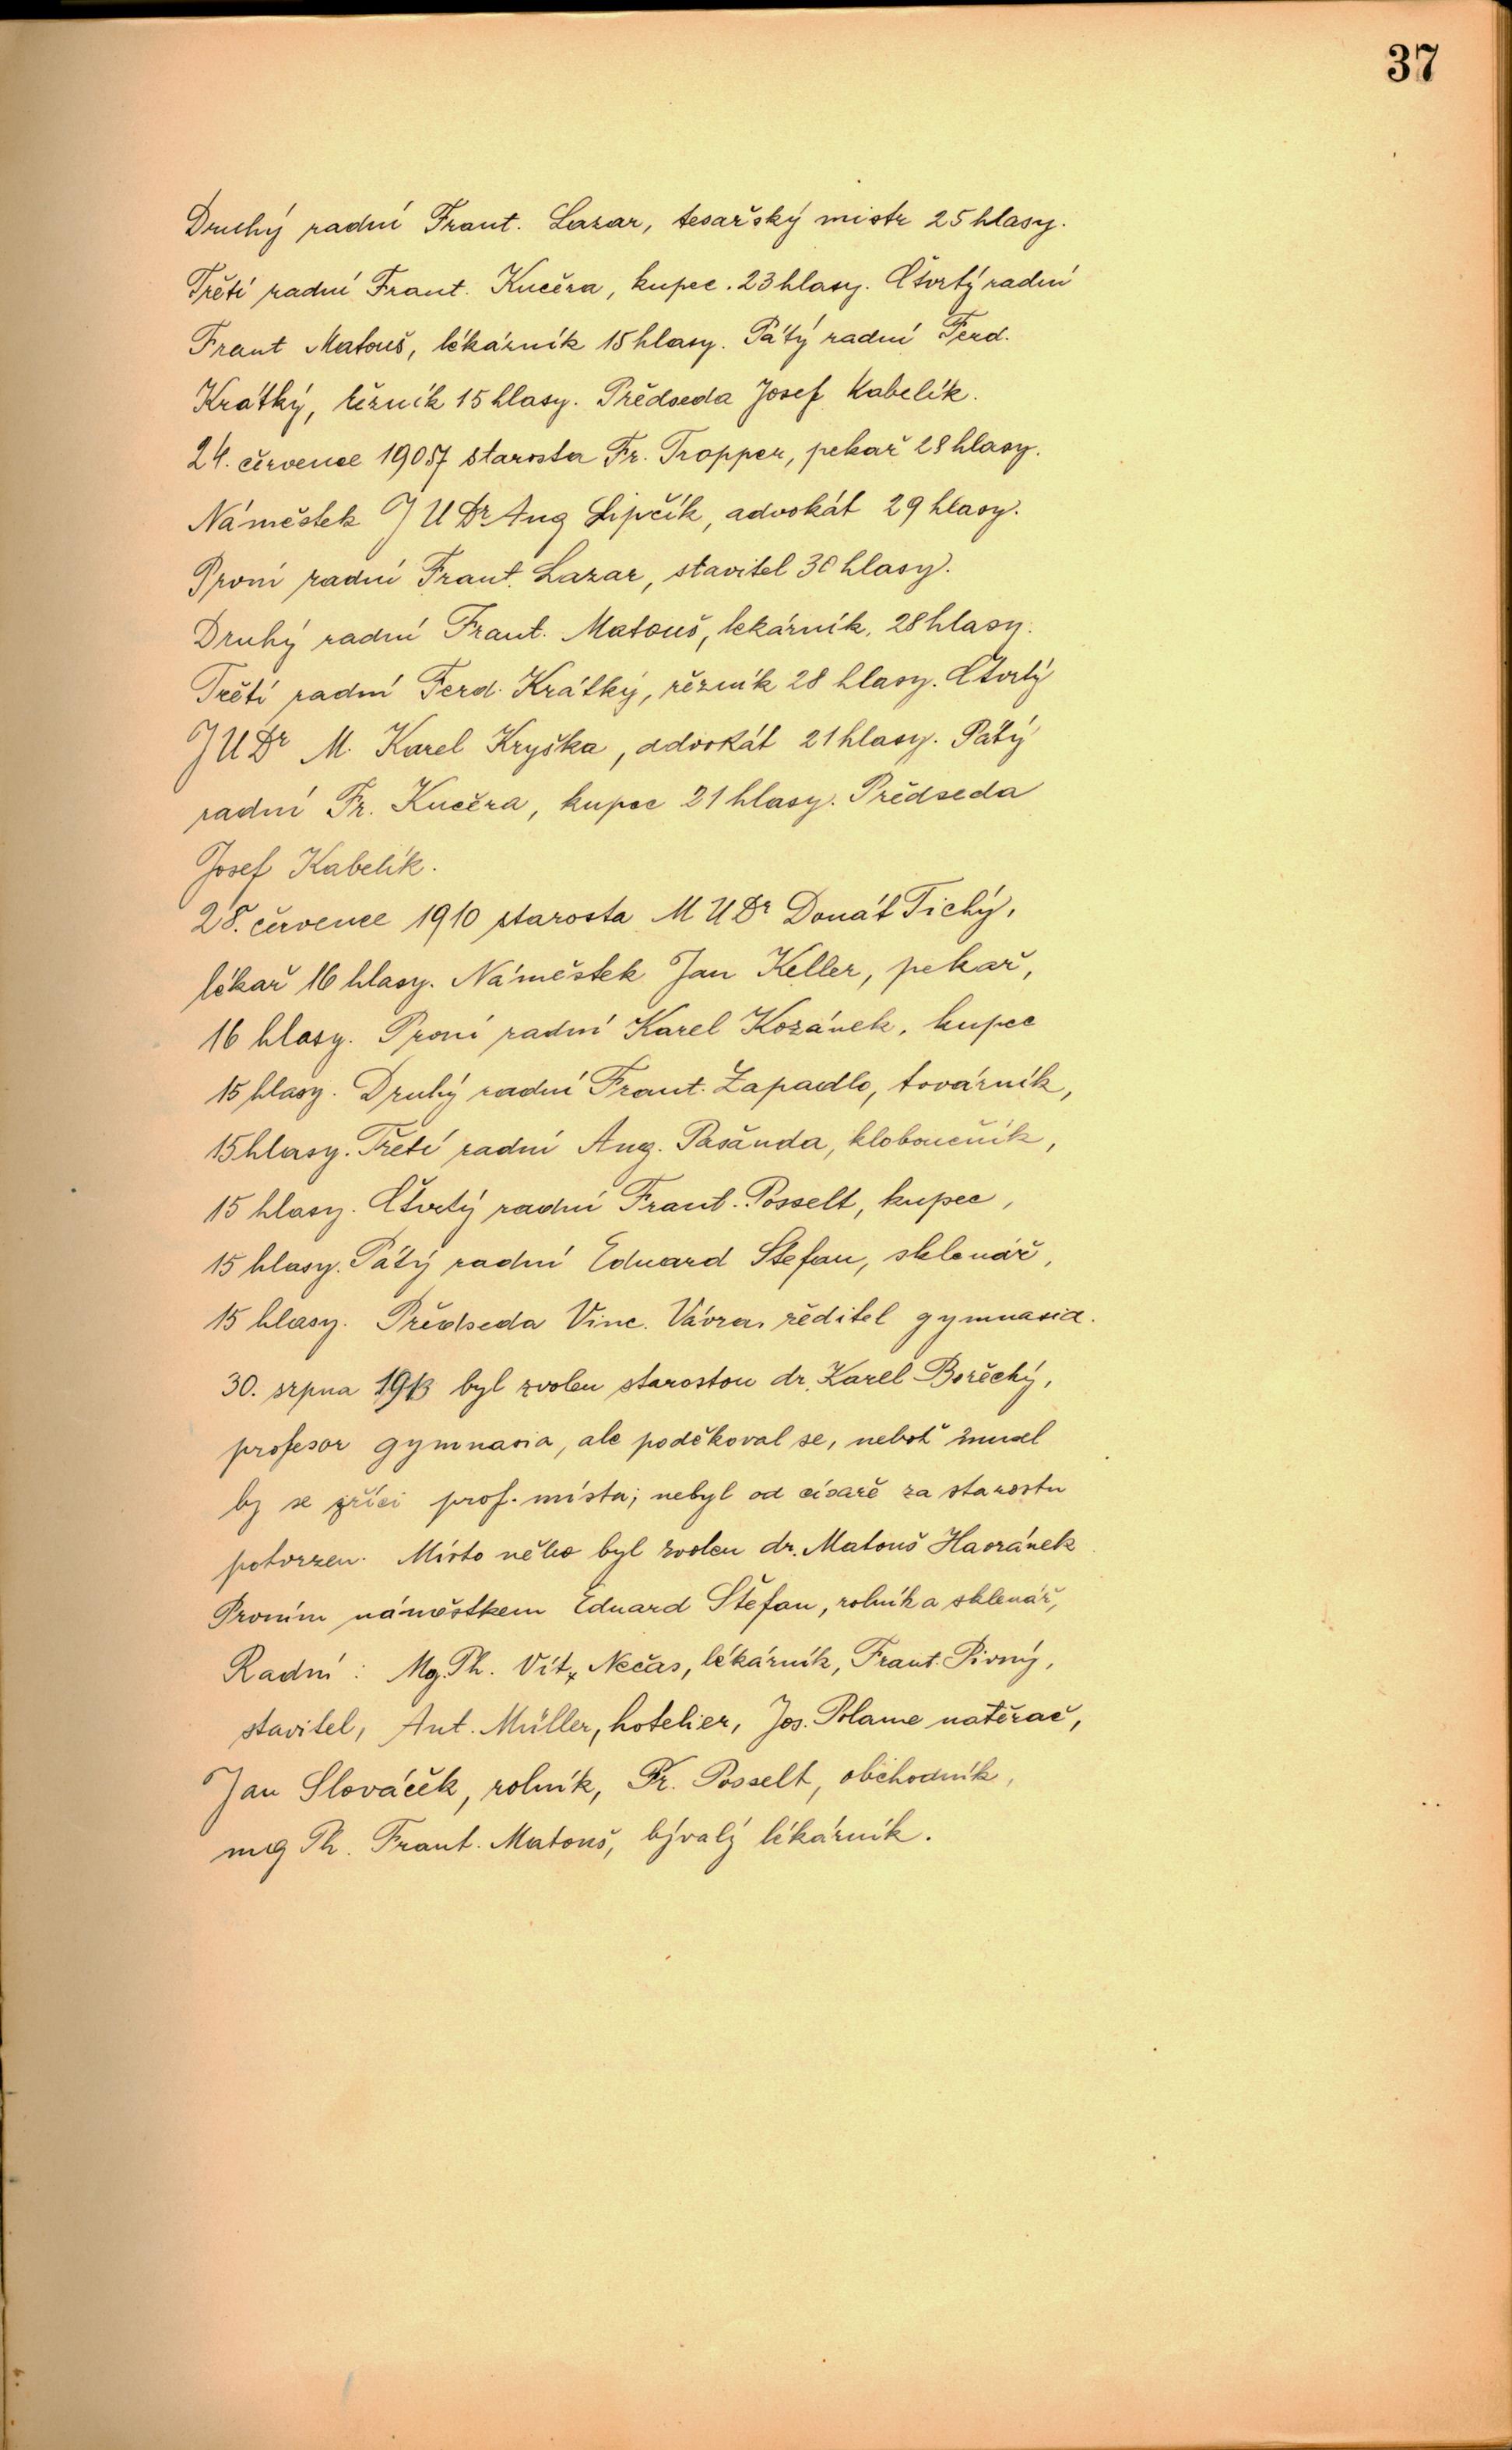 37
Druhý radní Frant. Lazar, tesařský mistr 25 hlasy.
Třetí radní Frant. Kučera, kupec. 23 hlasy. Čtvrtý radní
Frant Matouš, lékárník 15 hlasy. Pátý radní Ferd.
Krátký, řezník 15 hlasy. Předseda Josef Kabelík.
24. července 1907 starosta Fr. Tropper, pekař 28 hlasy.
Náměstek JUDr Aug Lipčík, advokát 29 hlasy.
První radní Frant. Lazar, stavitel 30 hlasy.
Druhý radní Frant. Matouš, lekárník, 28 hlasy.
Třetí radní Ferd. Krátký, řezník 28 hlasy. Čtvrtý
JUDr M. Karel Kryška, advokát 21 hlasy. Pátý
radní Fr. Kučera, kupec 21 hlasy. Předseda
Josef Kabelík.
28. července 1910 starosta MUDr Donát Tichý,
lékař 16 hlasy. Náměstek Jan Keller, pekař,
16 hlasy. První radní Karel Kozánek, kupec
15 hlasy. Druhý radní Frant. Zapadlo, továrník,
15 hlasy. Třetí radní Aug. Pasčunda, kloboučník,
15 hlasy. Čtvrtý radní Frant. Posselt, kupec,
15 hlasy. Pátý radní Eduard Štefan, sklenář,
15 hlasy. Předseda Vinc. Vávra, ředitel gymnasia.
30. srpna 1913 byl zvolen starostou dr. Karel Bořecký,
profesor gymnasia, ale poděkoval se, neboť musel
by se zříci prof. místa; nebyl od císaře za starostu
potvrzen. Místo něho byl zvolen dr. Matouš Havránek
Prvním náměstkem Eduard Štefan, rolník a sklenář,
Radní: Mg. Ph. Vít. Nečas, lékárník, Frant. Pivný,
stavitel, Ant. Müller, hotelier, Jos. Polame natěrač,
Jan Slováček, rolník, Fr. Posselt, obchodník,
mg Ph. Frant. Matouš, bývalý lékárník.